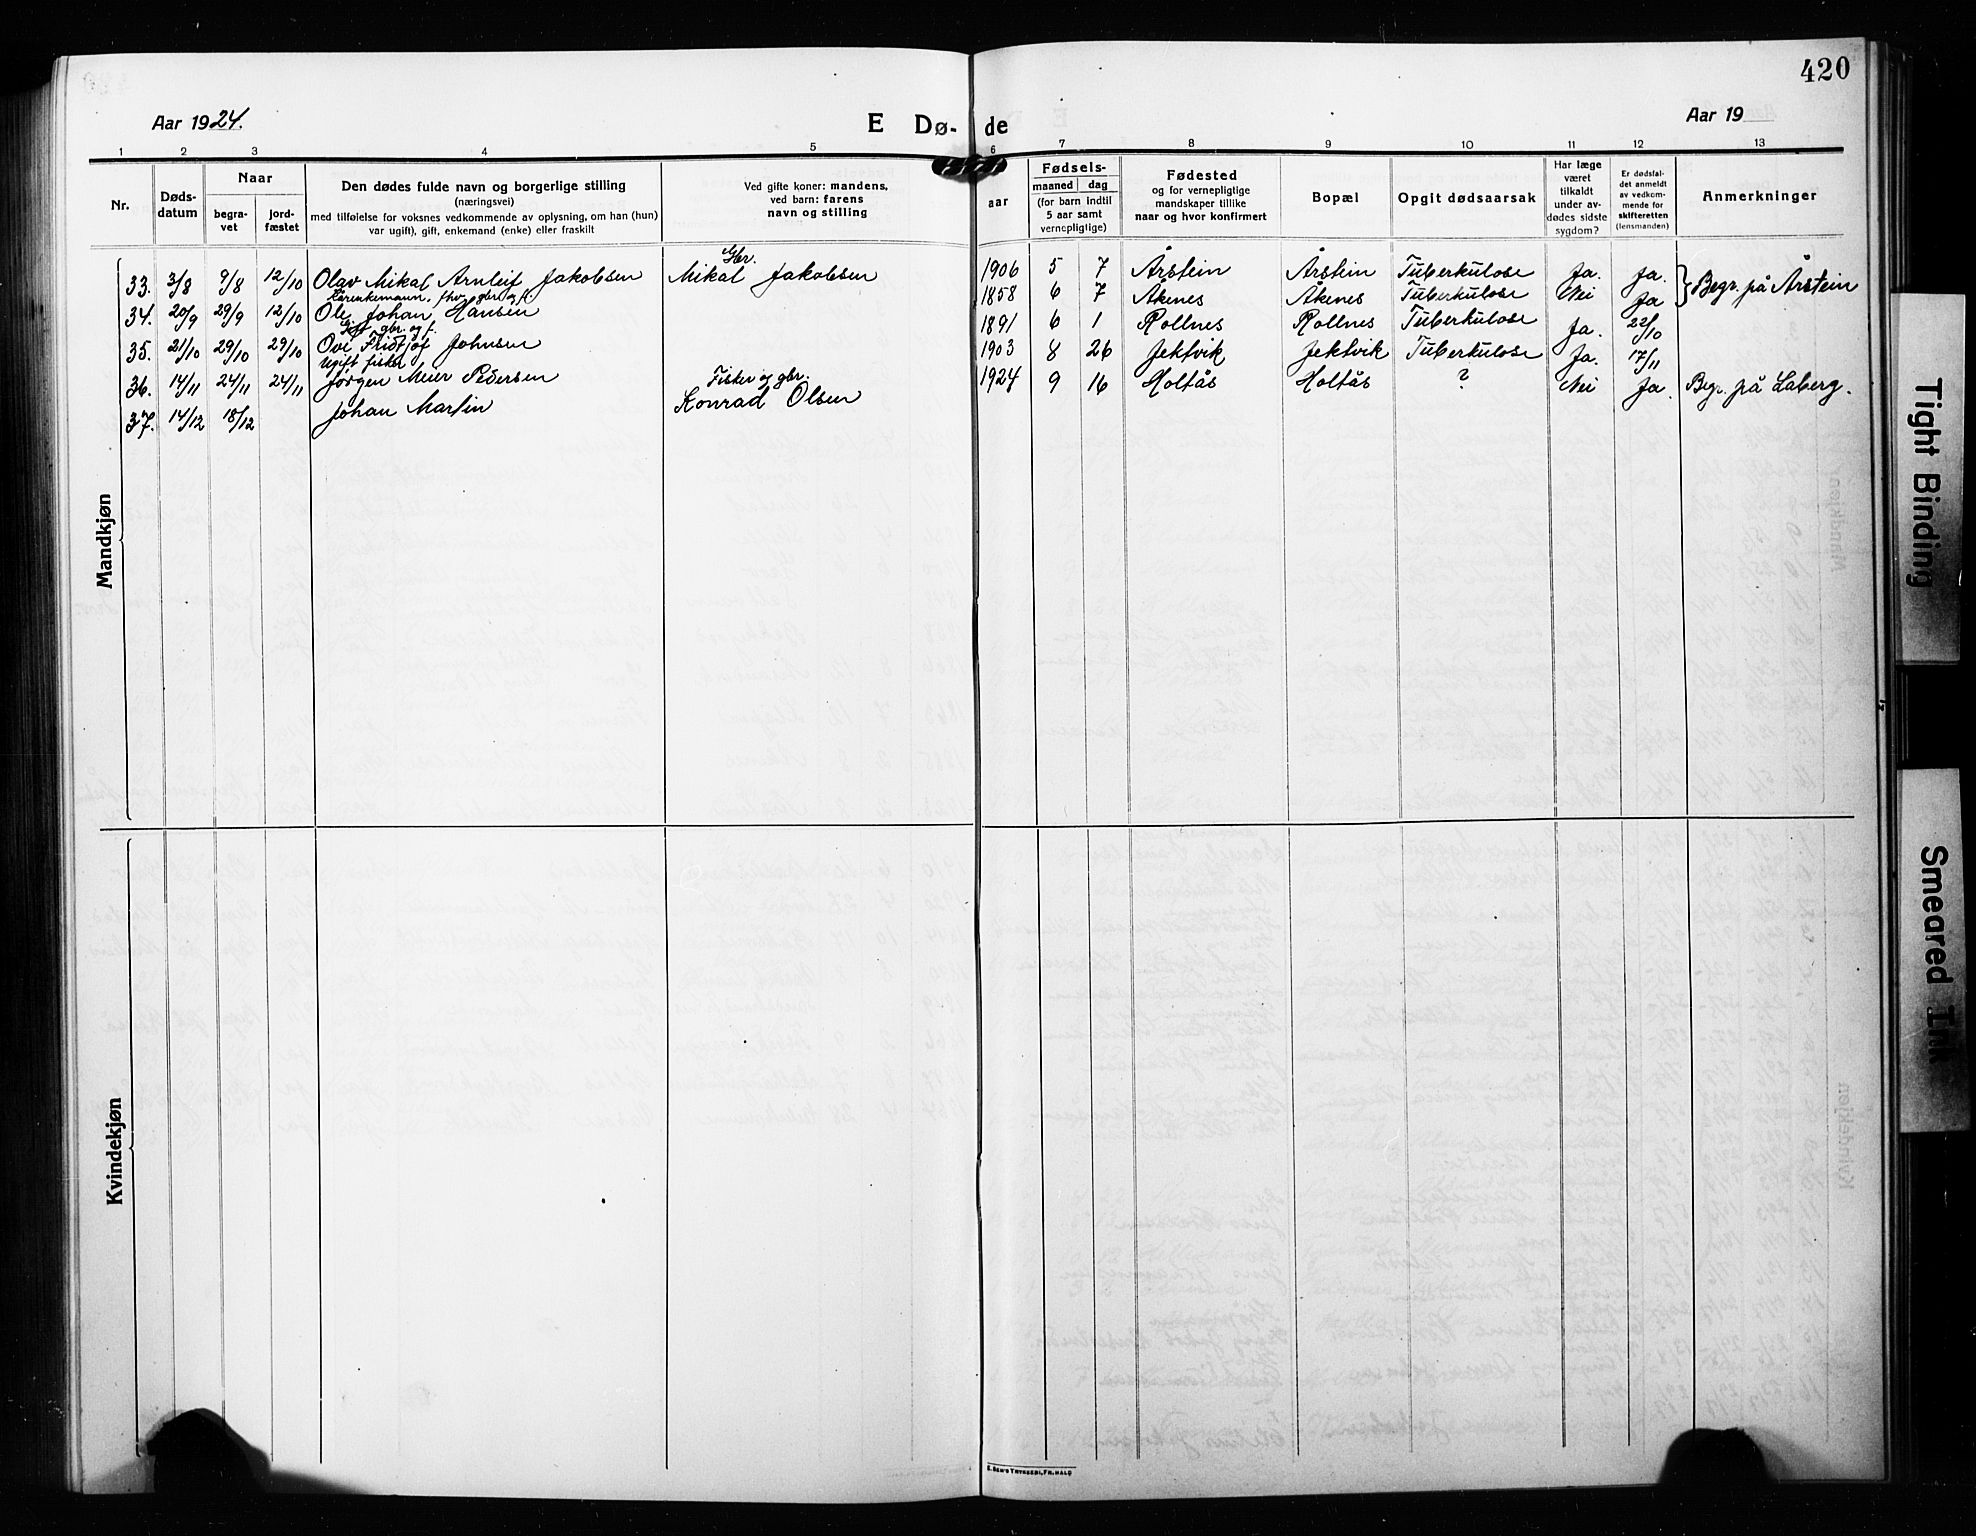 420
Aar 1924.
E Dø- de
Aar 19
1 2 3 4 5 6 7 8 9 10 11 12 13
Nr.
Døds-
datum
Naar
begra-
vet
jord-
fæstet
Den dødes fulde navn og borgerlige stilling
(næringsvei)
med tilføielse for voksnes vedkommende av oplysning, om han (hun)
var ugift), gift, enkemand (enke) eller fraskilt
Ved gifte koner: mandens,
ved barn: farens
navn og stilling
Fødsels-
aar
maaned dag
(for barn indtil
5 aar samt
vernepligtige)
Fødested
og for vernepligtige
mandskaper tillike
naar og hvor konfirmert
Bopæl
Opgit dødsaarsak
Har læge
været
tilkaldt
under av-
dødes sidste
sygdom?
Er dødsfal-
det anmeldt
av vedkom-
mende for
skifteretten
(lensmanden)
Anmerkninger
Mandkjøn
Gbr.
33. 3/8 9/8 12/10 Olav Mikal Arnleif Jakobsen Mikal Jakobsen 1906 5 7 Årstein Årstein Tuberkulose Ja. Ja. } Begr. på Årstein
gbr. og f.
34. 20/9 29/9 12/10 Ole Johan Hansen 1858 6 7 Åkenes Åkenes Tuberkulose Nei Ja
Gift gbr. og f.
35. 21/10 29/10 29/10 Ove Fridtjof Johnsen 1891 6 1 Rollnes Rollnes Tuberkulose Ja. 22/10
Ugift fisker
36. 14/11 24/11 24/11 Jørgen Meier Pedersen 1903 8 26 Jektvik Jektvik Tuberkulose Ja. 17/11
Fisker og gbr.
37. 14/12 18/12 Johan Martin Konrad Olsen 1924 9 16 Holtås Holtås ? Nei Ja. Begr. på Laberg.
Kvindekjøn
Tight Binding
Smeared Ink